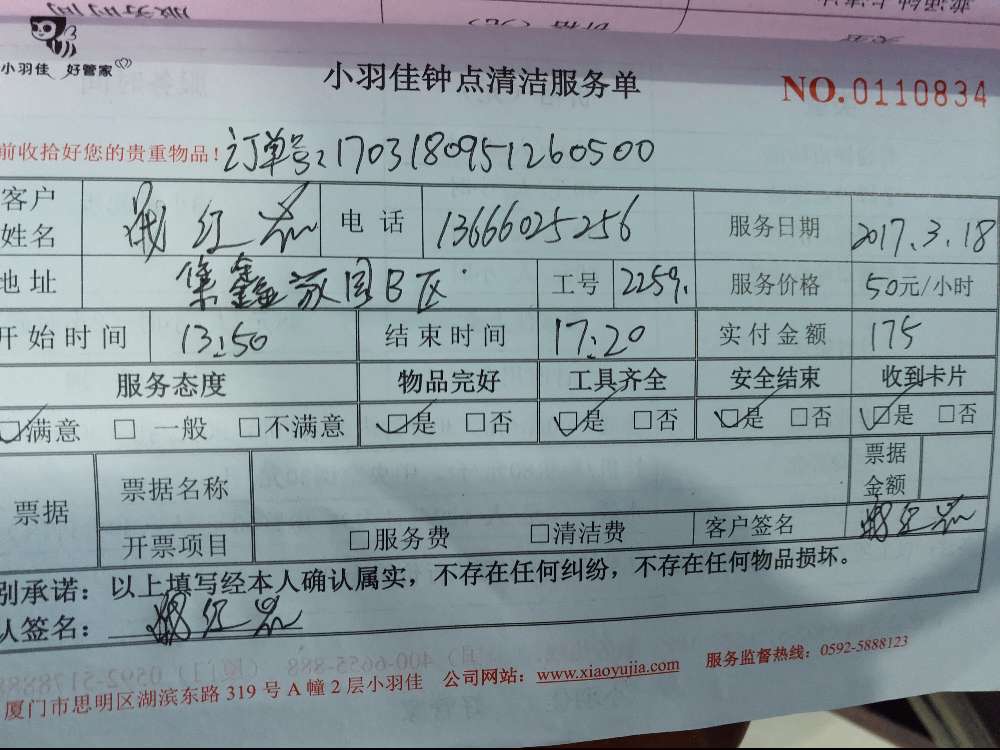 小羽佳 好管家
小羽佳钟点清洁服务单
NO.0110834
前收拾好您的贵重物品！ 订单号：170318095126 0500
客户姓名 红 电话 13666025256 服务日期 2017.3.18
地址 集鑫家园B区 工号 2259. 服务价格 50元/小时
开始时间 13:50 结束时间 17:20 实付金额 175
服务态度 物品完好 工具齐全 安全结束 收到卡片
☑满意 □ 一般 □不满意 ☑是 □否 ☑是 □否 ☑是 □否 ☑是 □否
票据 票据名称 票据金额
开票项目 □服务费 □清洁费 客户签名 红
别承诺：以上填写经本人确认属实，不存在任何纠纷，不存在任何物品损坏。
人签名： 红
厦门市思明区湖滨东路 319 号 A 幢 2 层小羽佳 公司网站：www.xiaoyujia.com 服务监督热线：0592-5888123